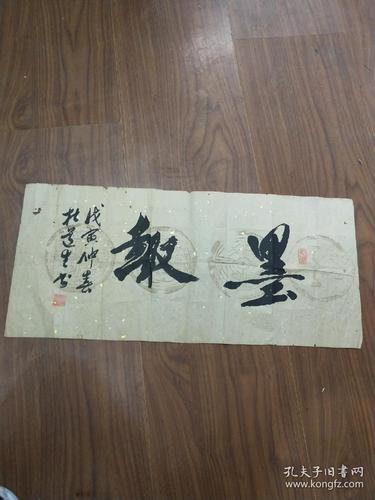 墨
戊寅仲春
杜道生书
孔夫子旧书网
www.kongfz.com